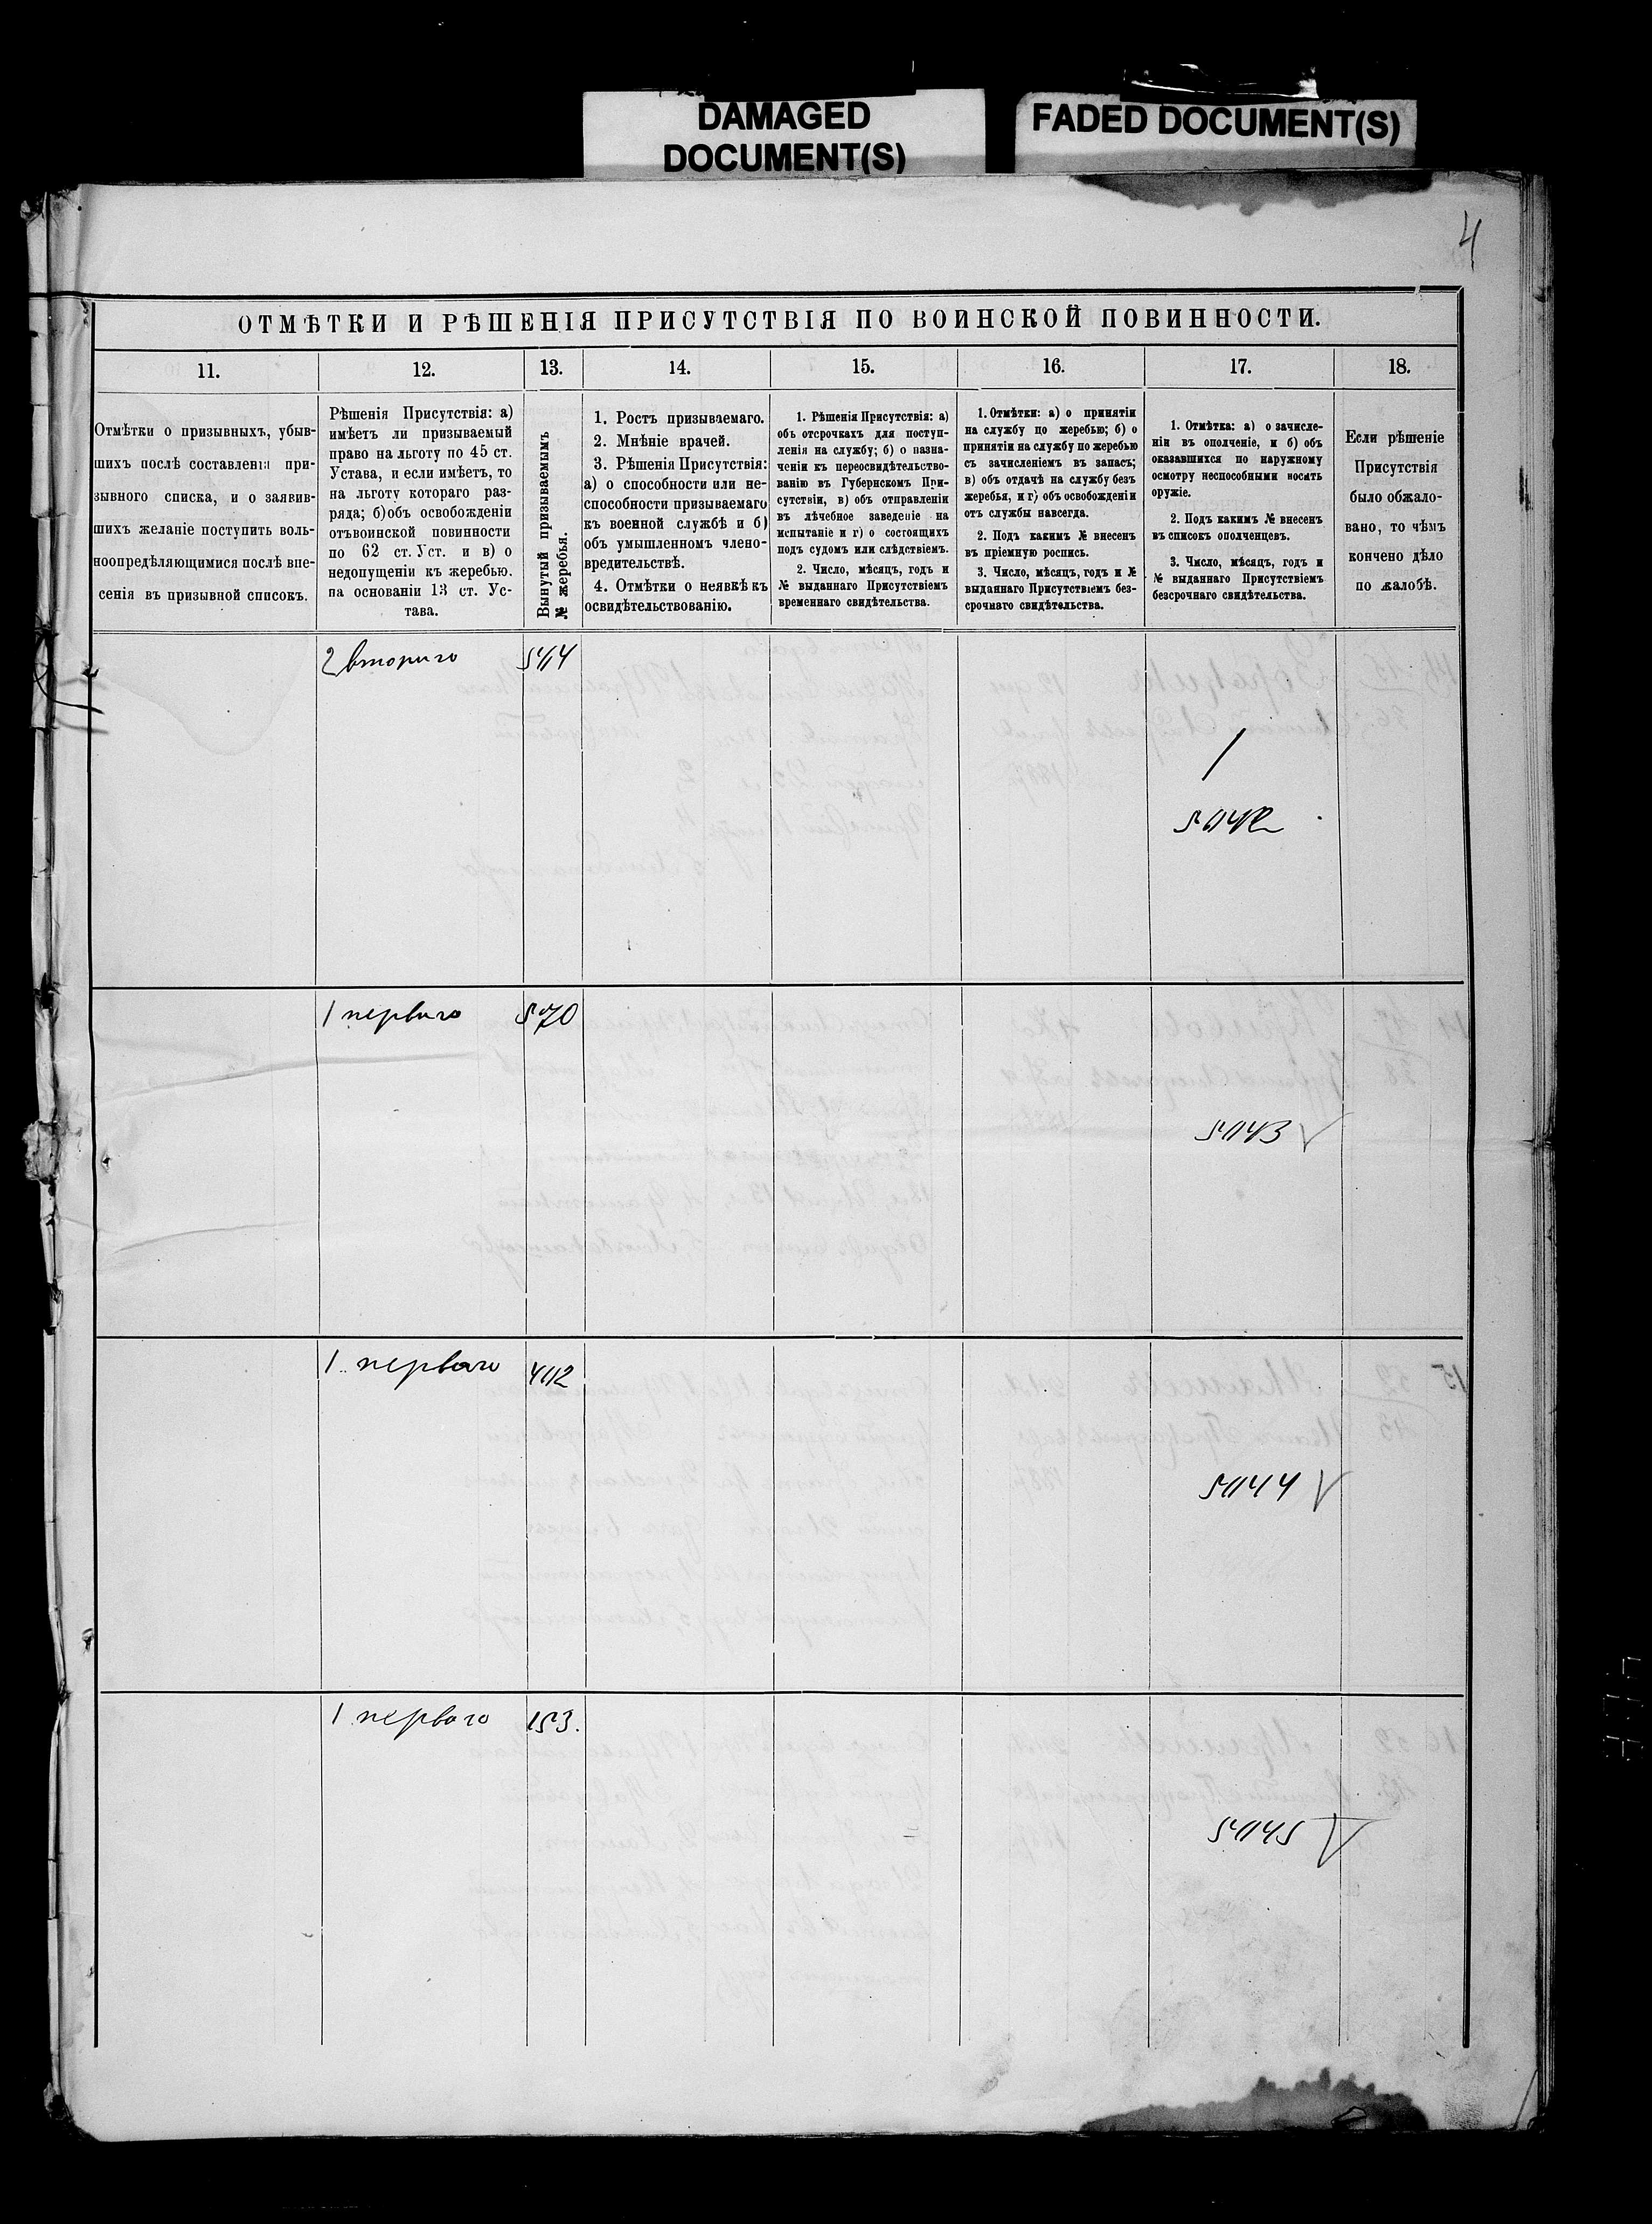 DAMAGED
DOCUMENT(S)
FADED DOCUMENT(S)
4
ОТМѢТКИ И РѢШЕНІЯ ПРИСУТСТВІЯ ПО ВОИНСКОЙ ПОВИННОСТИ.
11.
12.
13.
14.
15.
16.
17.
18.
Отмѣтки о призывныхъ, убыв-
шихъ послѣ составленія при-
зывного списка, и о заявив-
шихъ желаніе поступить воль-
ноопредѣляющимися послѣ вне-
сенія въ призывной списокъ.
Рѣшенія Присутствія: а)
имѣетъ ли призываемый
право на льготу по 45 ст.
Устава, и если имѣетъ, то
на льготу котораго раз-
ряда; б) объ освобожденіи
отъ воинской повинности
по 62 ст. Уст. и в) о
недопущеніи къ жеребью.
на основаніи 13 ст. Ус-
тава.
Вынутый призываемымъ
№ жеребья.
1. Ростъ призываемаго.
2. Мнѣніе врачей.
3. Рѣшенія Присутствія:
а) о способности или не-
способности призываемаго
къ военной службѣ и б)
объ умышленномъ члено-
вредительствѣ.
4. Отмѣтки о неявкѣ къ
освидѣтельствованію.
1. Рѣшенія Присутствія: а)
объ отсрочкахъ для поступ-
ленія на службу; б) о назна-
ченіи къ переосвидѣтельство-
ванію въ Губернскомъ При-
сутствіи, в) объ отправленіи
въ лѣчебное заведеніе на
испытаніе и г) о состоящихъ
подъ судомъ или слѣдствіемъ.
2. Число, мѣсяцъ, годъ и
№ выданнаго Присутствіемъ
временнаго свидѣтельства.
1. Отмѣтки: а) о принятіи
на службу по жеребью; б) о
принятіи на службу по жеребью
съ зачисленіемъ въ запасъ;
в) объ отдачѣ на службу безъ
жеребья, и г) объ освобожденіи
отъ службы навсегда.
2. Подъ какимъ № внесенъ
въ пріемную роспись.
3. Число, мѣсяцъ, годъ и №
выданнаго Присутствіемъ без-
срочнаго свидѣтельства.
1. Отмѣтка: а) о зачисле-
ніи въ ополченіе, и б) объ
оказавшихся по наружному
осмотру неспособными носить
оружіе.
2. Подъ какимъ № внесенъ
въ списокъ ополченцевъ.
3. Число, мѣсяцъ, годъ и
№ выданнаго Присутствіемъ
безсрочнаго свидѣтельства.
Если рѣшеніе
Присутствія
было обжало-
вано, то чѣмъ
кончено дѣло
по жалобѣ.
2 второго
1 перваго
570
1. перваго
1 перваго
153.